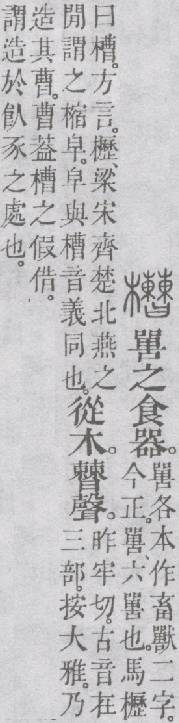 嘼之食器。
嘼各本作畜獸二字。
今正。嘼、六嘼也。馬櫪
曰槽。方言。櫪、梁宋齊楚北燕之
閒謂之樎皁。皁與槽音義同也。
從木。𣍘聲。
昨牢切。古音在
三部。按大雅。乃
造其曹。曹葢槽之假借。
謂造於飤豕之處也。